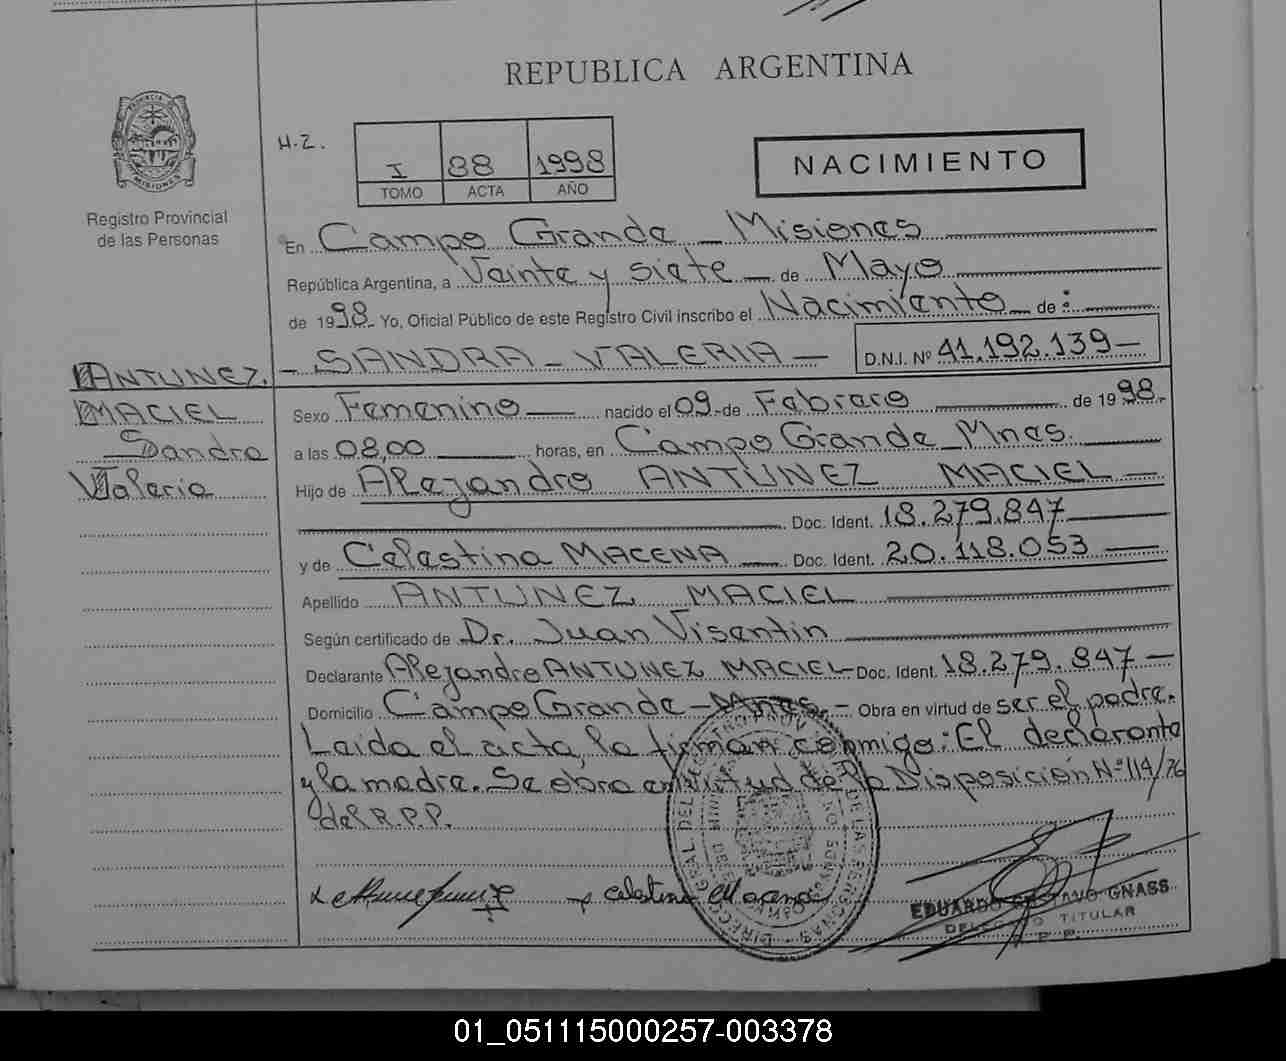 REPUBLICA ARGENTINA
H.Z.
I 88 1998
TOMO ACTA AÑO
NACIMIENTO
PROVINCIA DE
MISIONES
Registro Provincial
de las Personas
En Campo Grande - Misiones
República Argentina, a Veinte y siete de Mayo
de 1998 Yo, Oficial Público de este Registro Civil inscribo el Nacimiento de :
- SANDRA - VALERIA - D.N.I. Nº 41.192.139-
ANTUNEZ
MACIEL
Sandra
Valeria
Sexo Femenino nacido el 09 de Febrero de 1998.
a las 08,00 horas, en Campo Grande Mnes.
Hijo de Alejandro ANTUNEZ MACIEL
Doc. Ident. 18.279.847
y de Celestina MACENA Doc. Ident. 20.118.053
Apellido ANTUNEZ MACIEL
Según certificado de Dr. Juan Visentin
Declarante Alejandro ANTUNEZ MACIEL - Doc. Ident. 18.279.847 -
Domicilio Campo Grande - Mnes. - Obra en virtud de ser el padre.
Leida el acta, la firman conmigo: El declarante
y la madre. Se obra en virtud de la Disposición Nº 114/76
del R.P.P.
Celestina Macena
EDUARDO GUSTAVO GNASS
DELEGADO TITULAR
R.P.P.
01_051115000257-003378